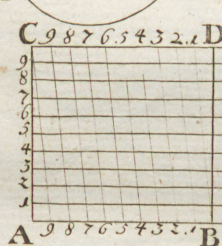 C 9 8 7 6 5 4 3 2 1 D
9
8
7
6
5
4
3
2
1
A 9 8 7 6 5 4 3 2 1 B